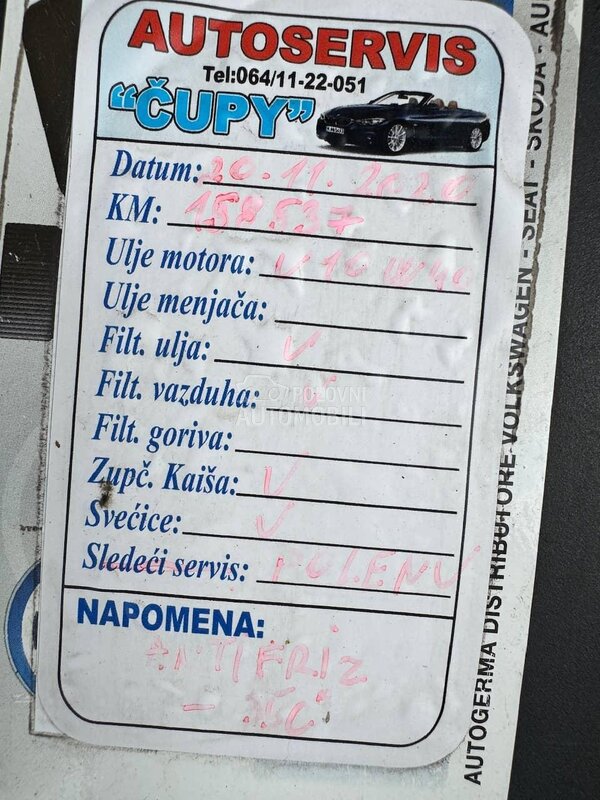 AUTOSERVIS
Tel:064/11-22-051
"ČUPY"
Datum: 20.11.2020
KM: 158537
Ulje motora: ✓ 10W40
Ulje menjača:
Filt. ulja: ✓
Filt. vazduha: ✓
Filt. goriva:
Zupč. Kaiša: ✓
Svećice: ✓
Sledeći servis: POLENV
NAPOMENA:
ANTIFRIZ
- 35C°
POLOVNI
AUTOMOBILI
AUTOGERMA DISTRIBUTORE VOLKSWAGEN - SEAT - SKODA - AU